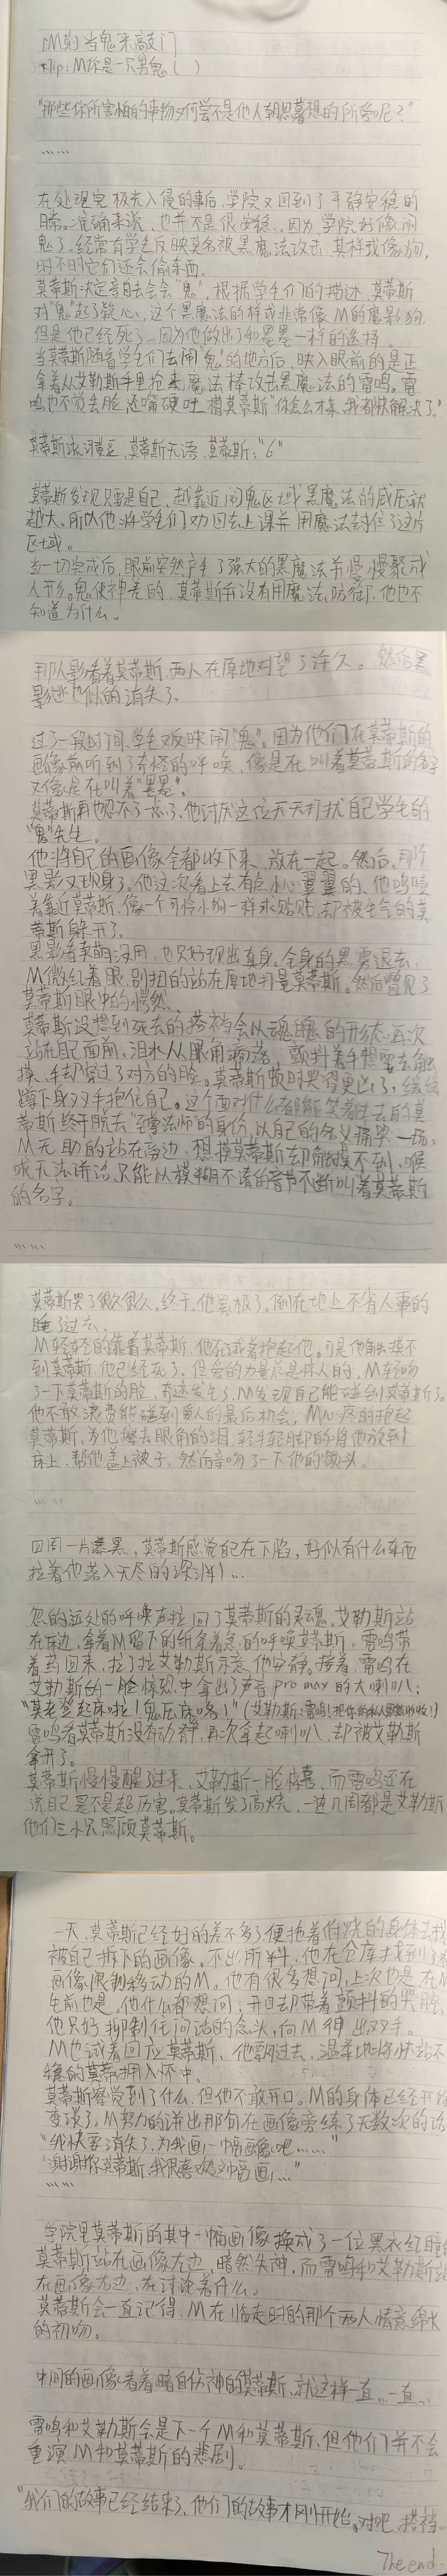 「M莫」当鬼来敲门
*Tip:M你是一只男鬼( )
"那些你所害怕的事物又何尝不是他人朝思暮想的所爱呢?"
……
在处理完极夫入侵的事后,学院又回到了平静安稳的
日常。准确来说,也并不是很安稳。因为,学院好像闹
鬼了。经常有学生反映莫名被黑魔法攻击,其样貌像狗,
时不时它们还会偷东西。
莫蒂斯决定亲自去会会"鬼",根据学生们的描述,莫蒂斯
对"鬼"起了疑心,这个黑魔法的样或非常像M的魔影狗,
但是他已经死了…因为他做出了和墨墨一样的选择。
当莫蒂斯随着学生们去闹"鬼"的地方后,映入眼前的是正
拿着从艾勒斯手里抢来魔法棒攻击黑魔法的雷鸣。雷
鸣也不觉丢脸,还嘴硬吐槽莫蒂斯"你怎么才来,我都快解决了。"
莫蒂斯流汗黄豆,莫蒂斯无语,莫蒂斯:"6"
莫蒂斯发现只要是自己,越靠近闹鬼区域黑魔法的威压就
越大。所以他将学生们劝回去上课并用魔法封住了这片
区域。
当一切完成后,眼前突然产生了强大的黑魔法并慢慢聚成
人形。鬼使神差的,莫蒂斯并没有用魔法防御,他也不
知道为什么。
那人影看着莫蒂斯,两人在原地对望了许久。然后黑
影逃也似的消失了。
过了一段时间,学生又反映闹"鬼"。因为他们在莫蒂斯的
画像前听到了奇怪的呼唤,像是在叫着莫蒂斯的名字
又像是在叫着"墨墨"。
莫蒂斯再也忍不了一点了,他讨厌这位天天打扰自己学生的
"鬼"先生。
他将自己的画像全都收下来,放在一起。然后,那个
黑影又现身了。他这次看上去有点小心翼翼的,他呜噎
着靠近莫蒂斯,像一个可怜小狗一样求贴贴,却被生气的莫
蒂斯躲开了。
黑影看卖萌没用,也只好现出真身。全身的黑雾退去,
M微红着眼,别扭的站在原地打量莫蒂斯。然后瞥见了
莫蒂斯眼中的愕然。
莫蒂斯没想到死去的搭裆会以魂魄的形态再次
站在自己面前,泪水从眼角滴落,颤抖着手想要去触
摸,手却穿过了对方的脸。莫蒂斯顿时哭得更凶了,缓缓
蹲下身双手抱住自己。这个面对什么都能笑着过去的莫
蒂斯终于脱去"至尊法师"的身份,以自己的名义痛哭一场。
M无助的站在旁边,想摸莫蒂斯却触摸不到,喉
咙无法讲话,只能以模糊不清的音节不断叫着莫蒂斯
的名字。
……
莫蒂斯哭了很久很久,终于,他累极了。倒在地上不省人事的
睡了过去。
M轻轻的靠着莫蒂斯,他在试着抱起他。可是他触摸不
到莫蒂斯,他已经死了,但爱的力量总是惊人的,M轻吻
了一下莫蒂斯的脸,奇迹发生了,M发现自己能碰到莫蒂斯了。
他不敢浪费能碰到爱人的最后机会,M心疼的抱起
莫蒂斯,为他擦去眼角的泪,轻手轻脚的将他放到
床上,帮他盖上被子,然后亲吻了一下他的额头。
……
四周一片漆黑,莫蒂斯感觉自己在下陷,好似有什么东西
拉着他落入无尽的深渊…
忽的远处的呼唤声拉回了莫蒂斯的灵魂。艾勒斯站
在床边,拿着M留下的纸条着急的呼唤莫蒂斯,雷鸣带
着药回来,拉了拉艾勒斯示意他安静。接着,雷鸣在
艾勒斯的一脸惊恐中拿出了声音pro max的大喇叭:
"莫老登起床啦!鬼压床喽!"(艾勒斯:雷鸣!把你的私人恩怨收收!)
雷鸣看莫蒂斯没有动静,再次拿起喇叭,却被艾勒斯
拿开了。
莫蒂斯慢慢醒了过来,艾勒斯一脸惊喜,而雷鸣还在
说自己是不是超厉害。莫蒂斯发了高烧,一连几周都是艾勒斯
他们三小只照顾莫蒂斯。
一天,莫蒂斯已经好的差不多了,便拖着低烧的身体去找
被自己拆下的画像。不出所料,他在仓库找到了被
画像限制移动的M。他有很多想问,上次也是,在M
生前也是,他什么都想问,开口却带着颤抖的哭腔,
他只好抑制住问话的念头,向M伸出双手。
M也试着回应莫蒂斯,他飘过去,温柔地将快站不
稳的莫蒂斯拥入怀中。
莫蒂斯察觉到了什么,但他不敢开口。M的身体已经开始
变淡了,M努力的讲出那句在画像旁练了无数次的话
"我快要消失了,为我画一幅画像吧……"
"谢谢你莫蒂斯,我很喜欢这幅画…"
……
学院里莫蒂斯的其中一幅画像换成了一位黑衣红瞳的
莫蒂斯站在画像左边,暗然失神,而雷鸣和艾勒斯站
在画像右边,在讨论着什么。
莫蒂斯会一直记得,M在临走时的那个两人情意绵长
的初吻。
中间的画像看着暗自伤神的莫蒂斯,就这样一直…一直…
雷鸣和艾勒斯会是下一个M和莫蒂斯,但他们并不会
重演M和莫蒂斯的悲剧。
"我们的故事已经结束了,他们的故事才刚开始。对吧,搭裆…
The end